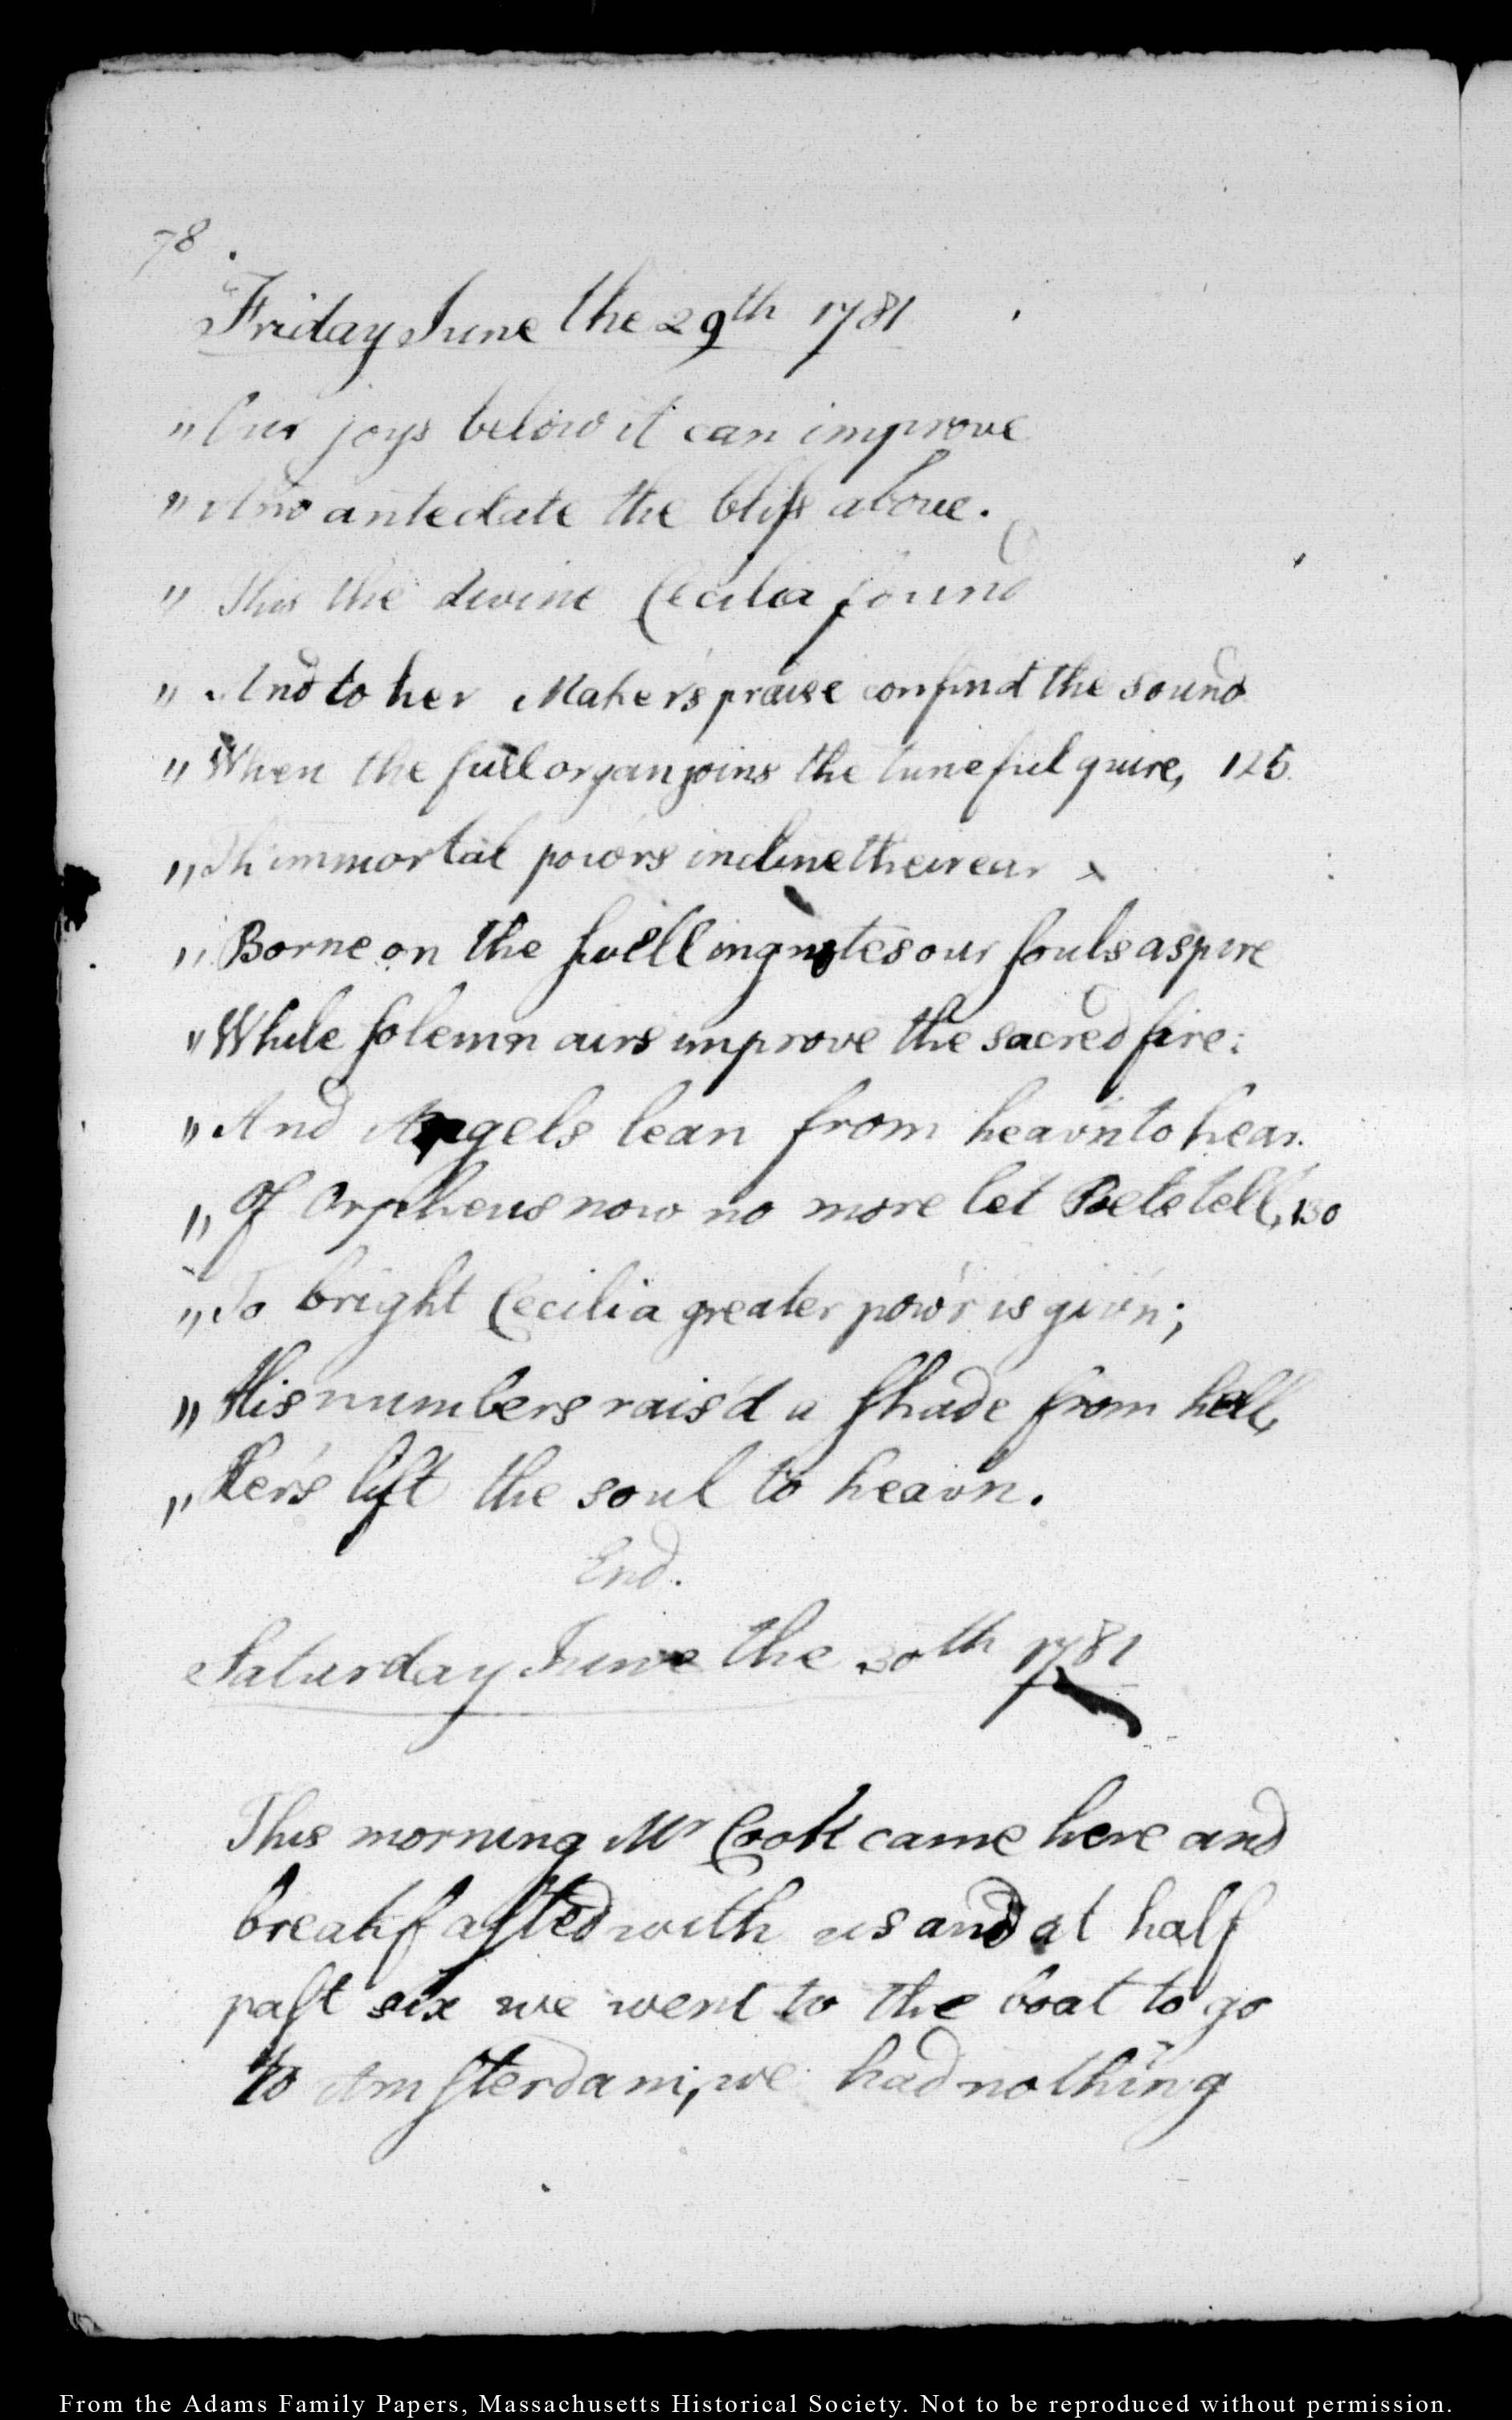 78.
Friday June the 29th 1781
" Our joys below it can improve
" And antedate the bliss above.
" This the divine Cecilia found
" And to her Maker's praise confin'd the sound
" When the full organ joins the tuneful quire, 125.
" Th'immortal pow'rs incline their ear
" Borne on the swelling notes our souls aspire
" While solemn airs improve the sacred fire:
" And Angels lean from heav'n to hear.
" Of Orpheus now no more let Poets tell, 130
" To bright Cecilia greater pow'r is giv'n;
" His numbers rais'd a shade from hell,
" Her's lift the soul to heav'n.
End.
Saturday June the 30th 1781
This morning Mr Cook came here and
breakfasted with us and at half
past six we went to the boat to go
to Amsterdam, we had nothing
From the Adams Family Papers, Massachusetts Historical Society. Not to be reproduced without permission.